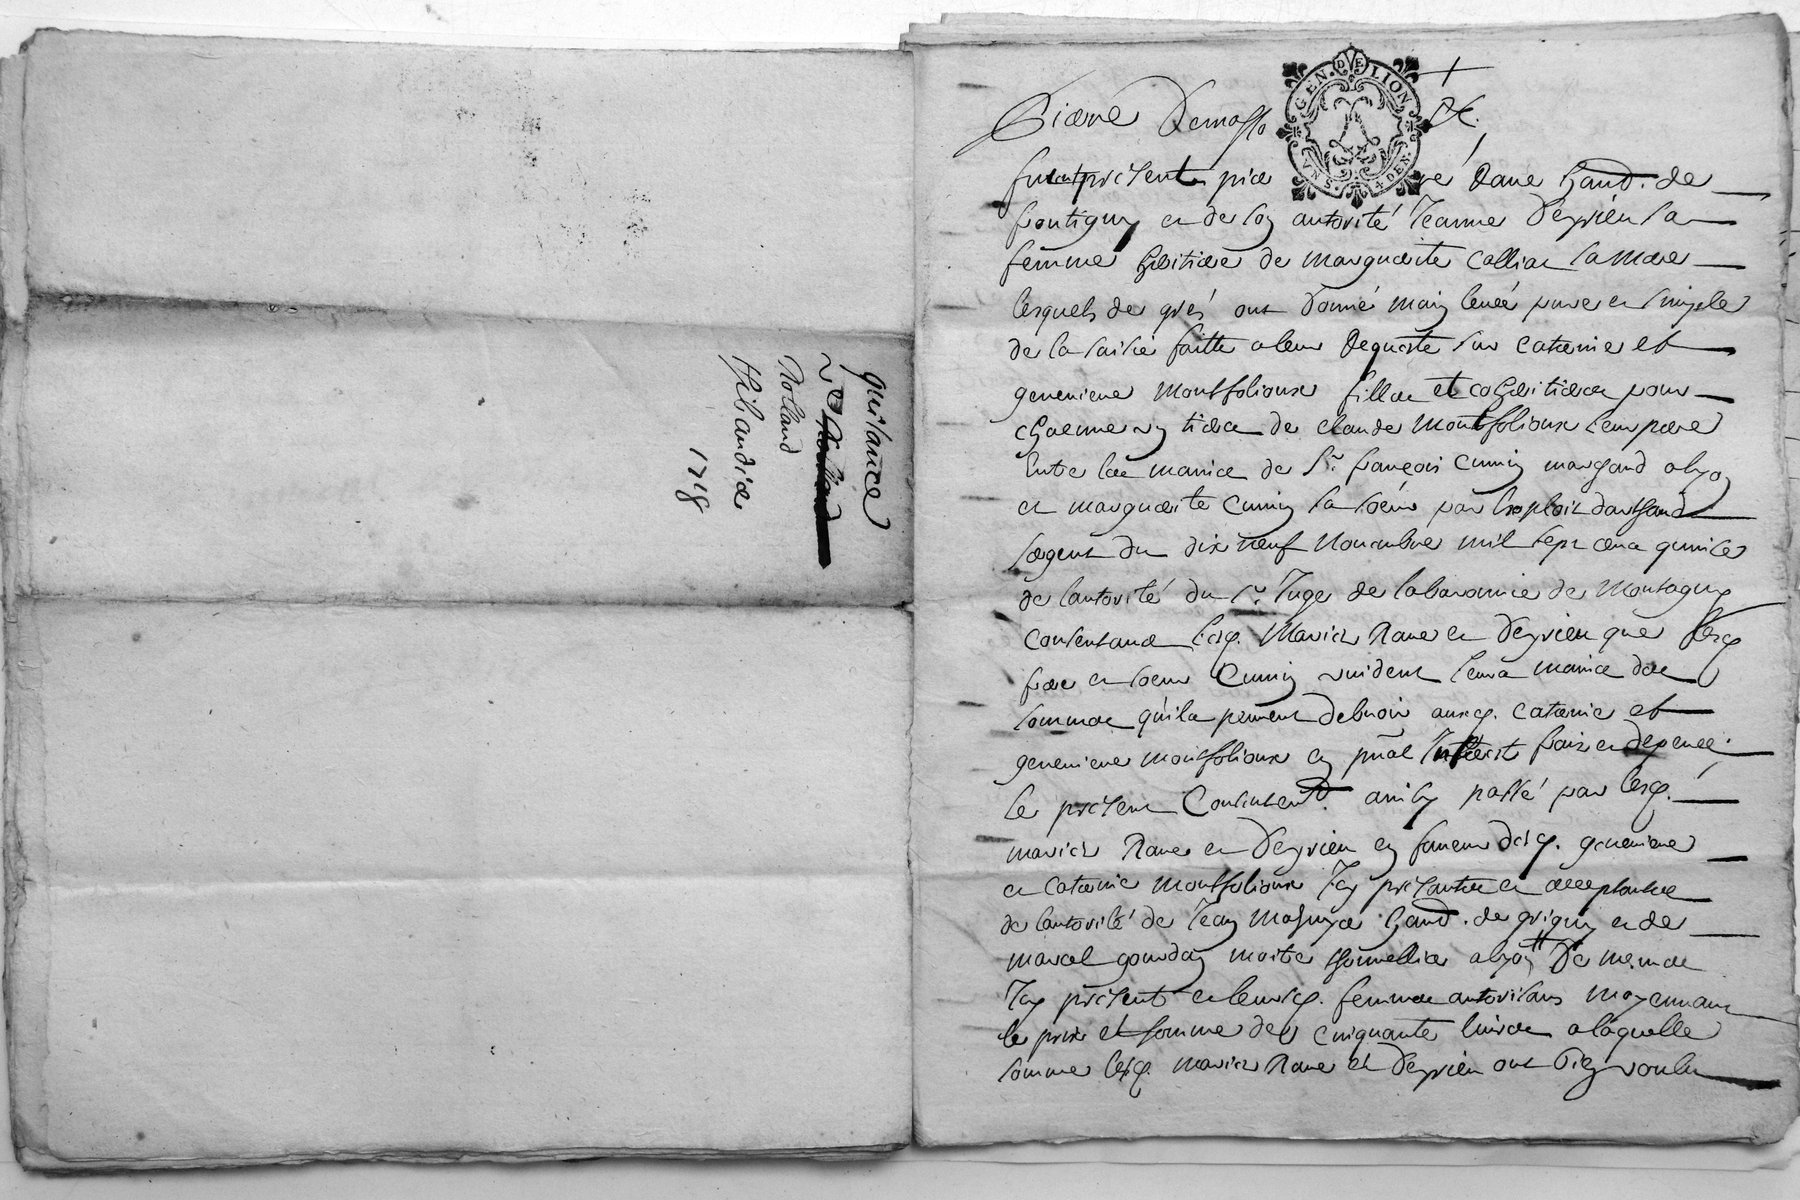 quitance
Rolland
thibaudier
1718
GEN. DE LION
VN S. 4 DEN.
Pierre
furent présents
frontigny et de son autorité Jeanne Deyrieu sa
femme héritière de marguerite la mere
lesquels de gré ont donné main levée pure et simple
de la saisie faitte a leur Requeste sur Caterine et
genevieve Montfolioux filles et cohéritières pour
chacune un tiers de claude Montfolioux leur pere
Entre les mains de Sr. françois Cunin marchand a lyon
et marguerite Cunin sa soeur par Exploit
sergent du dix neuf Novembre mil sept cens quinze
de lautorité du Sr. Juge de la baronnie de Montagny
consentans lesq. Mariez Rave et Deyrieu que lesq.
frere et soeur Cunin vuident leurs mains des
sommes qu'ils peuvent debvoir ausq. Caterine et
genevieve montfolioux en pñal Intérest frais et depence
le présent Consentemt. ainsy passé par lesq.
mariez Rave et Deyrieu en faveur desq. genevieve
et Caterine Montfolioux Icy présentes et acceptantes
de lautorité de Jean habt. de grigny et de
marcel gourdan maitre thonnellier a lyon
Icy présents et leursq. femmes autorisans moyennant
le prix et somme de cinquante livres a laquelle
somme lesq. mariez Rave et Deyrieu ont bien voulu